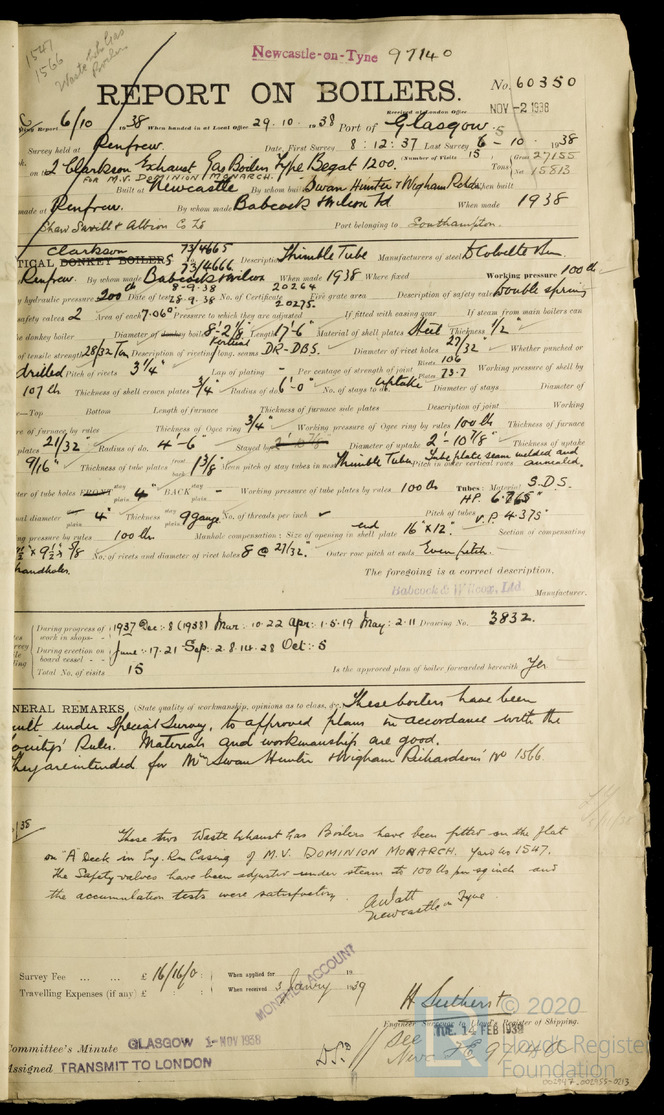 1547
1566
Waste Exh Gas
Boilers
Newcastle-on-Tyne 97140
REPORT ON BOILERS.
No. 60350
Received at London Office
NOV -2 1938
Report 6/10 1938 When handed in at Local Office 29.10.1938 Port of Glasgow
Survey held at Renfrew. Date, First Survey 8:12:37 Last Survey 6-10-1938
on 2 Clarkson Exhaust Gas Boilers Type Begat 1200. (Number of Visits 15) Tons Gross 27155
FOR M.V. DOMINION MONARCH. Net 15813
Built at Newcastle By whom built Swan Hunter & Wigham Rchds. When built
made at Renfrew. By whom made Babcock & Wilcox Ld When made 1938
Shaw Savill & Albion C Ld Port belonging to Southampton.
Clarkson
TICAL DONKEY BOILERS 73/4665 73/4666 Description Thimble Tube Manufacturers of steel D Colville & Sons
Renfrew. By whom made Babcock & Wilcox When made 1938 Where fixed Working pressure 100 lb
by hydraulic pressure 200 lb Date of test 8-9-38 28.9.38 No. of Certificate 20264 20275 Fire grate area Description of safety valves Double spring
safety valves 2 Area of each 7.06" Pressure to which they are adjusted If fitted with easing gear If steam from main boilers can
the donkey boiler Diameter of donkey boiler 8'-2 1/8" Length 17'-6" Material of shell plates Steel Thickness 1/2"
of tensile strength 28/32 Ton Description of riveting long. seams Vertical DR-DBS. Diameter of rivet holes 27/32" Whether punched or
drilled Pitch of rivets 3 1/4" Lap of plating - Per centage of strength of joint Rivets 106 Plates 73.7 Working pressure of shell by
107 lb Thickness of shell crown plates 3/4" Radius of do. 6'-0" No. of stays to do. uptake Diameter of stays Diameter of
—Top Bottom Length of furnace Thickness of furnace side plates Description of joint Working
re of furnace by rules Thickness of Ogee ring 3/4" Working pressure of Ogee ring by rules 100 lb Thickness of furnace
plates 21/32" Radius of do. 4'-6" Stayed by 2'-10 7/8" Diameter of uptake 2'-10 7/8" Thickness of uptake
9/16" Thickness of tube plates front back 1 3/8" Mean pitch of stay tubes in nests Thimble Tubes Pitch in outer vertical rows Tube plate seam welded and annealed.
ter of tube holes FRONT stay plain 4" BACK stay plain - Working pressure of tube plates by rules 100 lb Tubes: Material S.D.S.
HP. 6.765"
nal diameter stay plain 4" Thickness stay plain 9 gauge No. of threads per inch Pitch of tubes V.P. 4.375"
ng pressure by rules 100 lb Manhole compensation: Size of opening in shell plate end 16" x 12" Section of compensating
x 9 1/2" x 7/8 No. of rivets and diameter of rivet holes 8 @ 27/32" Outer row pitch at ends Even pitch.
handholes.
The foregoing is a correct description,
Babcock & Wilcox, Ltd.
Manufacturer.
During progress of work in shops - - 1937 Dec: 8 (1938) Mar: 10.22 Apr: 1.5.19 May: 2.11 Drawing No. 3832.
During erection on board vessel - - June: 17.21 Sep: 2.8.14.28 Oct: 5
Total No. of visits 15 Is the approved plan of boiler forwarded herewith Yes
NERAL REMARKS (State quality of workmanship, opinions as to class, &c. These boilers have been
built under Special Survey, to approved plans in accordance with the
Rules. Materials and workmanship are good.
They are intended for Mrs Swan Hunter & Wigham Richardson's No 1566.
/38
These two Waste Exhaust Gas Boilers have been fitted on the flat
on "A" Deck in Eng. Rm Casing of M.V. DOMINION MONARCH. Yard No 1547.
The Safety valves have been adjusted under steam to 100 lbs per sq inch and
the accumulation tests were satisfactory.
A Watt
Newcastle on Tyne.
Survey Fee ... ... £ 16/16/0 : When applied for 19
Travelling Expenses (if any) £ : : When received 3 January 1939
MONTHLY ACCOUNT
H Sutherst
Engineer Surveyor to Lloyd's Register of Shipping.
TUE. 14 FEB 1939
Committee's Minute GLASGOW 1-NOV 1938
Assigned TRANSMIT TO LONDON
See
Nwc
© 2020
LR
Lloyd's Register
Foundation
002947-002955-0213